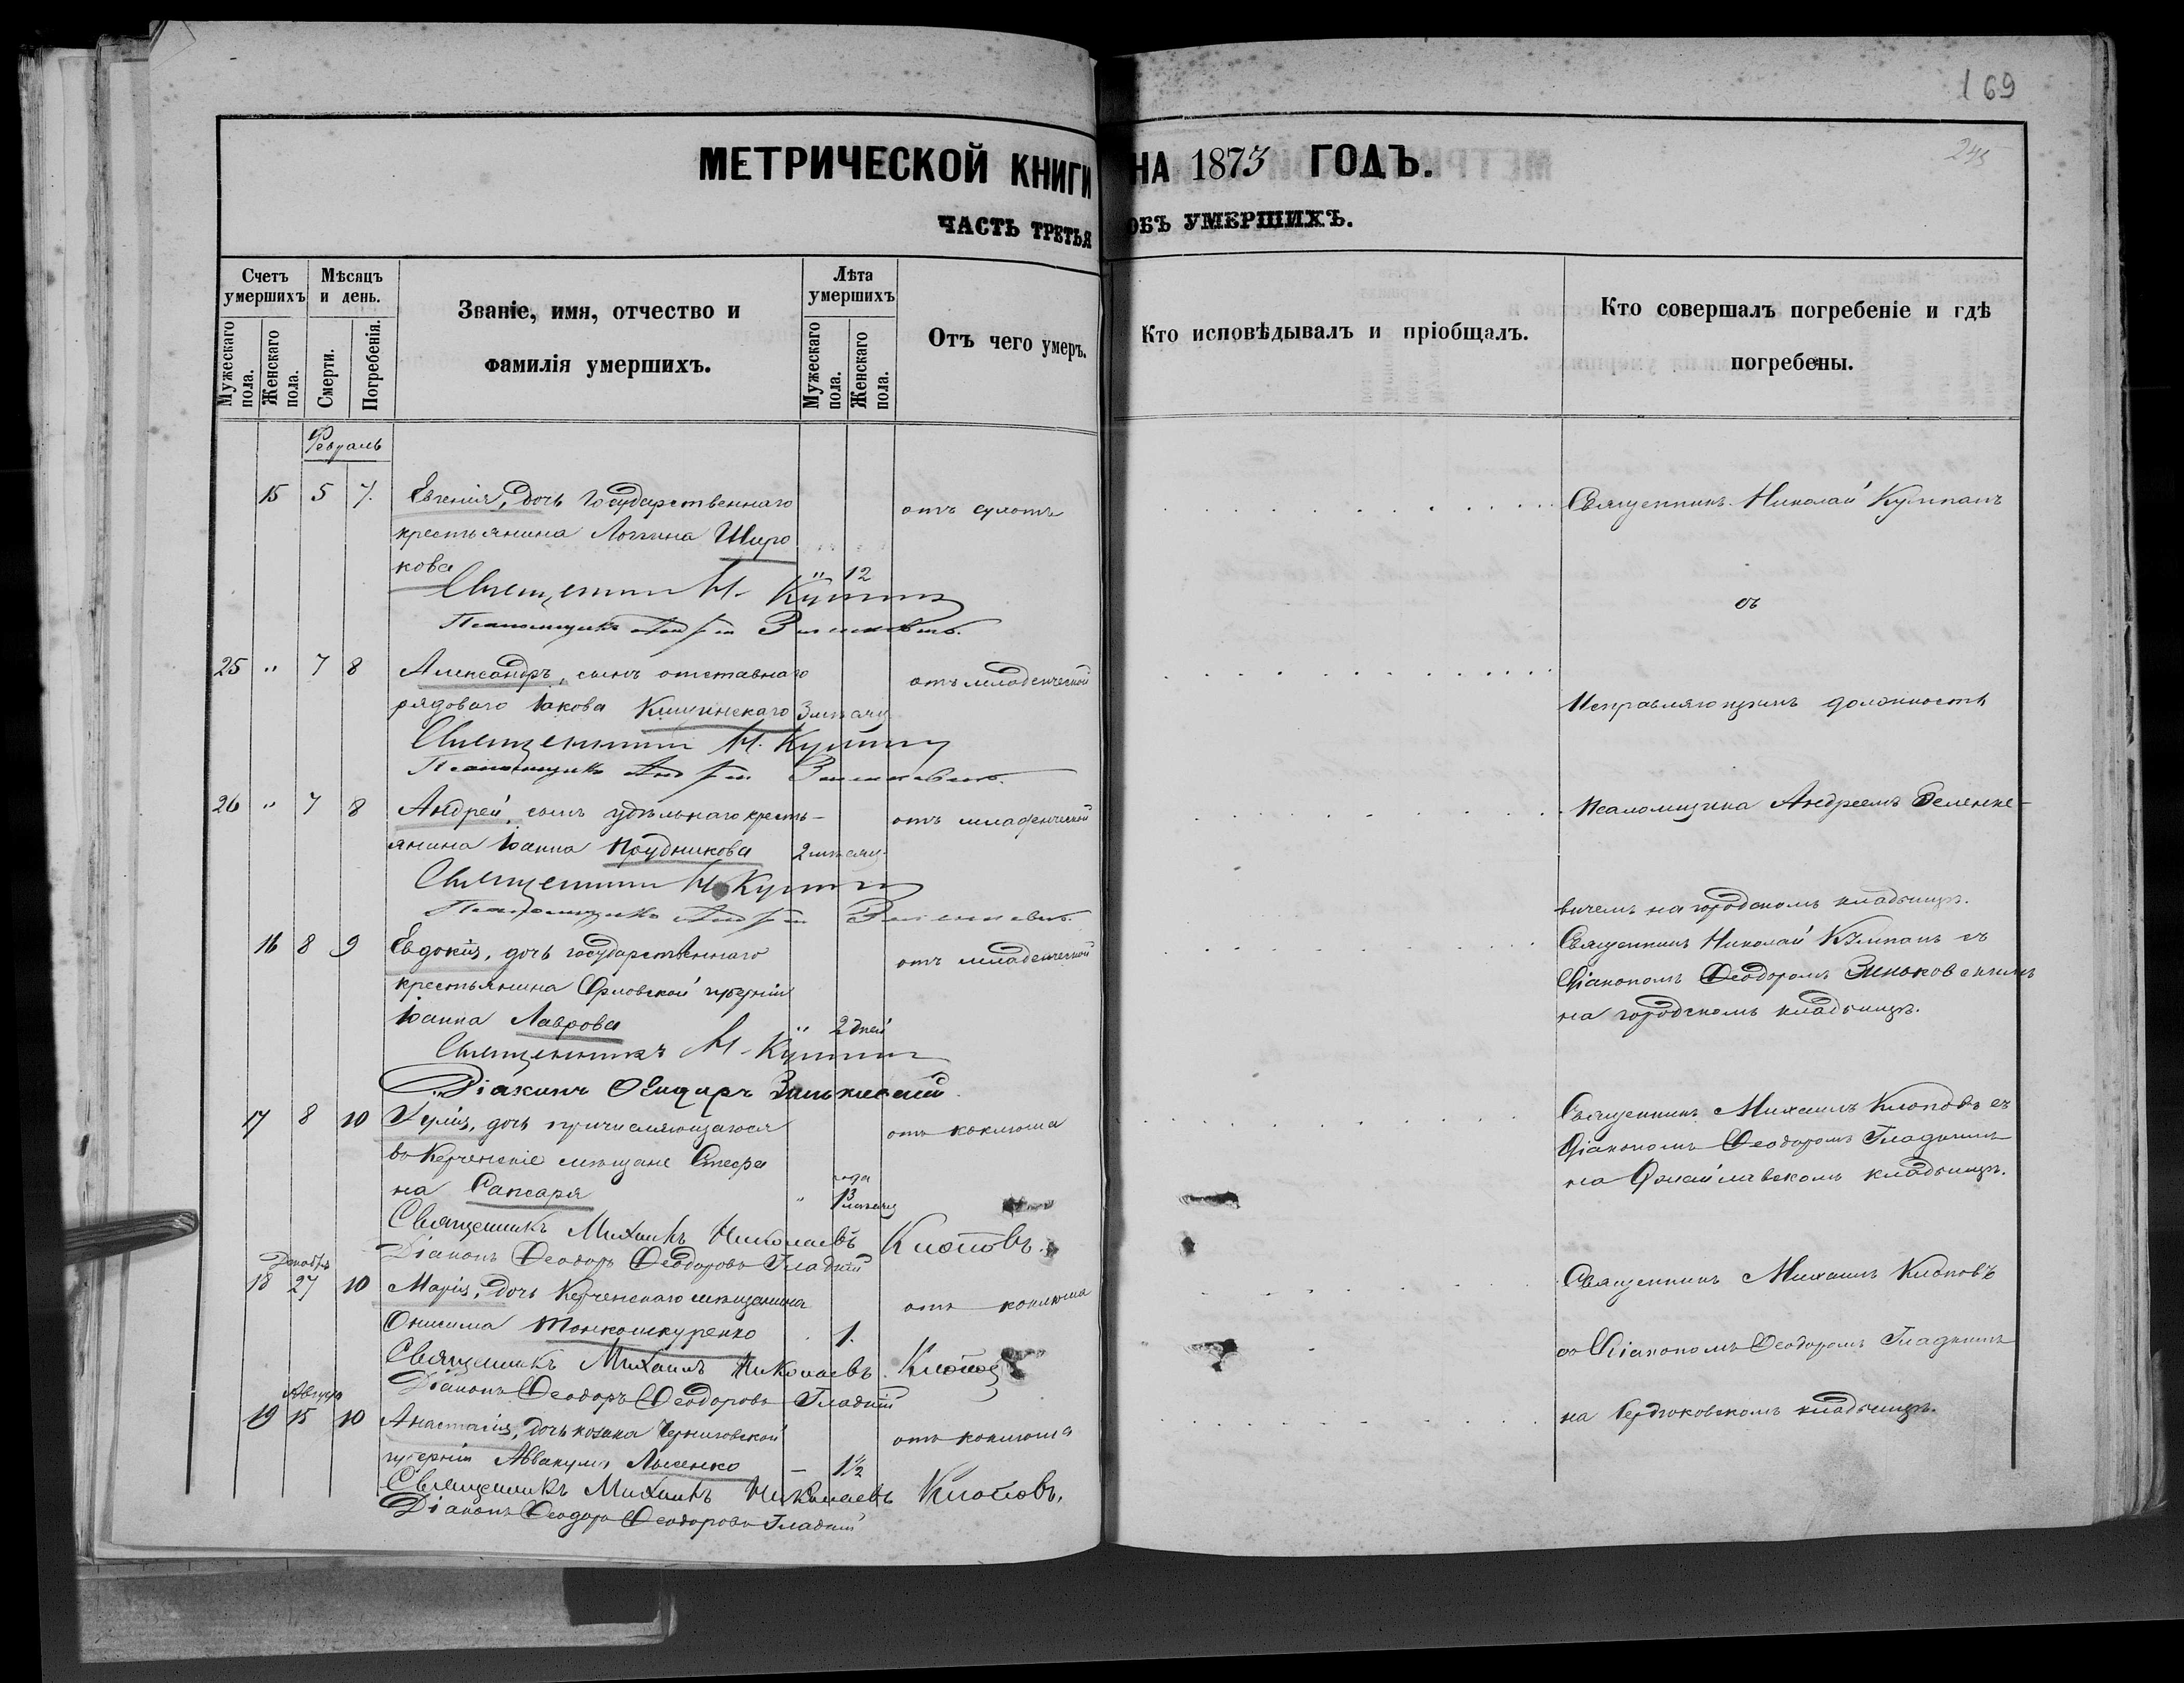 169
245
МЕТРИЧЕСКОЙ КНИГИ НА 1873 ГОДЪ.
ЧАСТЬ ТРЕТЬЯ ОБЪ УМЕРШИХЪ.
Счетъ умершихъ
Мѣсяцъ и день.
Званіе, имя, отчество и фамилія умершихъ.
Лѣта умершихъ
Отъ чего умеръ.
Кто исповѣдывалъ и пріобщалъ.
Кто совершалъ погребеніе и гдѣ погребены.
Мужескаго пола.
Женскаго пола.
Смерти.
Погребенія.
Мужескаго пола.
Женскаго пола.
Февраль
15 5 7. Евгенія, дочь государственнаго
крестьянина Логгина Широ
кова " 12
отъ
Священникъ Николай Кумпанъ
съ
Священникъ Н.
Псаломщикъ
25 " 7 8 Александръ, сынъ отставнаго
рядоваго Іакова 3 мѣсяц
отъ младенческой
Исправляющимъ должность
Священникъ Н.
Псаломщикъ
26 " 7 8 Андрей, сынъ удѣльнаго кресть-
янина Іоанна Прудникова 2 мѣсяц
отъ младенческой
псаломщика Андреемъ Зеленке-
вичемъ на городскомъ кладбищѣ.
Священникъ Н.
Псаломщикъ
16 8 9 Евдокія, дочь государственнаго
крестьянина Орловской губерніи
Іоанна Лаврова " 2 дней
отъ младенческой
Священникъ Николай Кумпанъ съ
Діакономъ Ѳеодоромъ Зеньковскимъ
на городскомъ кладбищѣ.
Священникъ Н.
Діаконъ
17 8 10 Іулія, дочь причисляющагося
въ Керченскіе мѣщане Стефа
на " года
1 3 мѣсяц
отъ коклюша
Священникъ Михаилъ Клоповъ съ
Діакономъ Ѳеодоромъ Гладкимъ
на кладбищѣ.
Священникъ Михаилъ Николаевъ Клоповъ.
Діаконъ Ѳеодоръ Ѳеодоровъ Гладкій
Декабрь
18 27 10 Марія, дочь Керченскаго мѣщанина
Онисима Тонкошкуренко 1.
отъ коклюша
Священникъ Михаилъ Клоповъ
съ Діакономъ Ѳеодоромъ Гладкимъ
Священникъ Михаилъ Николаевъ Клоповъ
Діаконъ Ѳеодоръ Ѳеодоровъ Гладкій
19 15 10 Анастасія, дочь козака Черниговской
губерніи Аввакума Лысенко — 1½
отъ коклюша
на кладбищѣ.
Священникъ Михаилъ Николаевъ Клоповъ.
Діаконъ Ѳеодоръ Ѳеодоровъ Гладкій